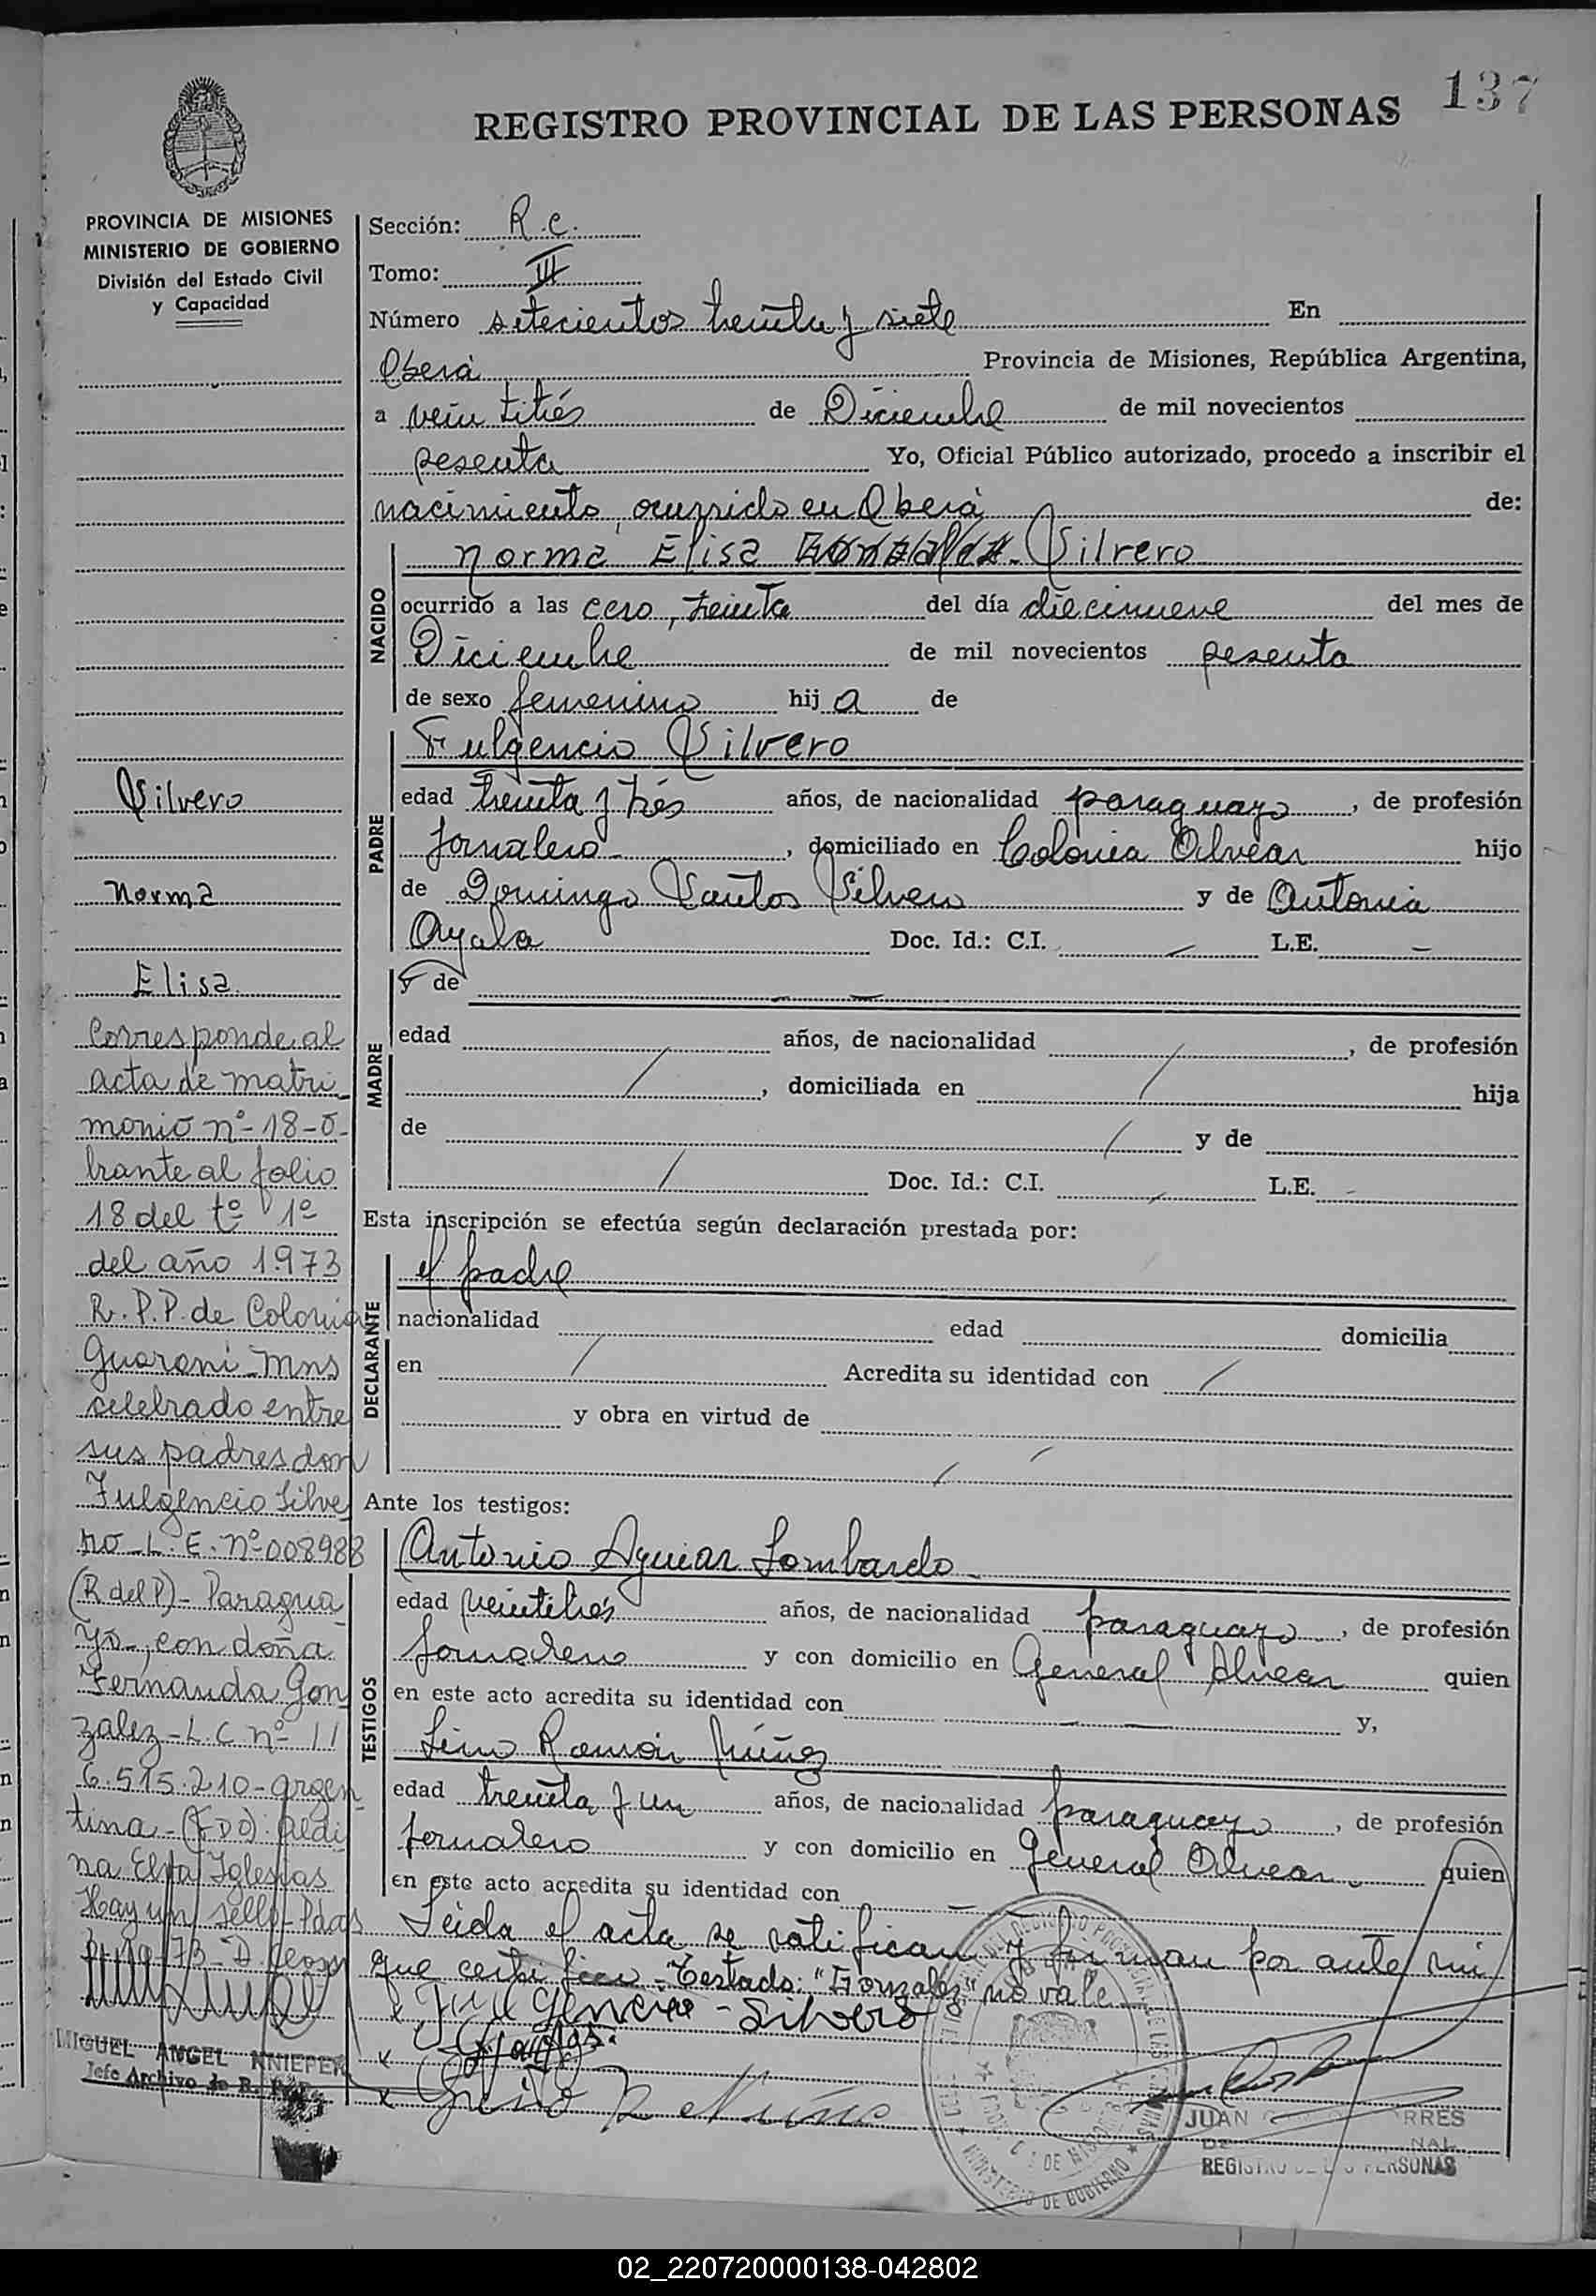 137
REGISTRO PROVINCIAL DE LAS PERSONAS
PROVINCIA DE MISIONES
MINISTERIO DE GOBIERNO
División del Estado Civil
y Capacidad
Sección: R.C.
Tomo: III
Número setecientos treinta y siete En
Oberá Provincia de Misiones, República Argentina,
a veintitrés de Diciembre de mil novecientos
sesenta Yo, Oficial Público autorizado, procedo a inscribir el
nacimiento, ocurrido en Oberá de:
NACIDO
Norma Elisa Gonzalez Silvero
ocurrido a las cero, treinta del día diecinueve del mes de
Diciembre de mil novecientos sesenta
de sexo femenino hij a de
PADRE
Fulgencio Silvero
edad treinta y trés años, de nacionalidad paraguayo, de profesión
Jornalero, domiciliado en Colonia Alvear hijo
de Domingo Santos Silvero y de Antonia
Ayala Doc. Id.: C.I. L.E.
MADRE
y de
edad años, de nacionalidad , de profesión
, domiciliada en hija
de y de
Doc. Id.: C.I. L.E.
Esta inscripción se efectúa según declaración prestada por:
DECLARANTE
el padre
nacionalidad edad domicilia
en Acredita su identidad con
y obra en virtud de
Ante los testigos:
TESTIGOS
Antonio Aguiar Lombardo
edad veintitrés años, de nacionalidad paraguayo, de profesión
Jornalero y con domicilio en General Alvear quien
en este acto acredita su identidad con y,
Lino Ramón Núñez
edad treinta y un años, de nacionalidad paraguayo, de profesión
Jornalero y con domicilio en General Alvear quien
en este acto acredita su identidad con
Leida el acta se ratifican y firman por ante mi
que certifico - Testado: "Gonzalez" no vale
Fulgencio - Silvero
Lino R Nuñes
JUAN RRES
REGISTRO DE LAS PERSONAS
MINISTERIO DE GOBIERNO
Silvero
Norma
Elisa
Corresponde al
acta de matri
monio nº 18-o
brante al folio
18 del tº 1º
del año 1973
R.P.P. de Colonia
Guarani Mns
celebrado entre
sus padres don
Fulgencio Silve
ro L.E. nº 008988
(R del P) - Paragua
yo, con doña
Fernanda Gon
zalez - L.C nº 11
6.515.210 - argen
tina - (FDO) Aldi
na Elsa Iglesias
Hay un sello - Pdas
MIGUEL ANGEL KNIEPER
Jefe Archivo de R. P. P.
02_220720000138-042802